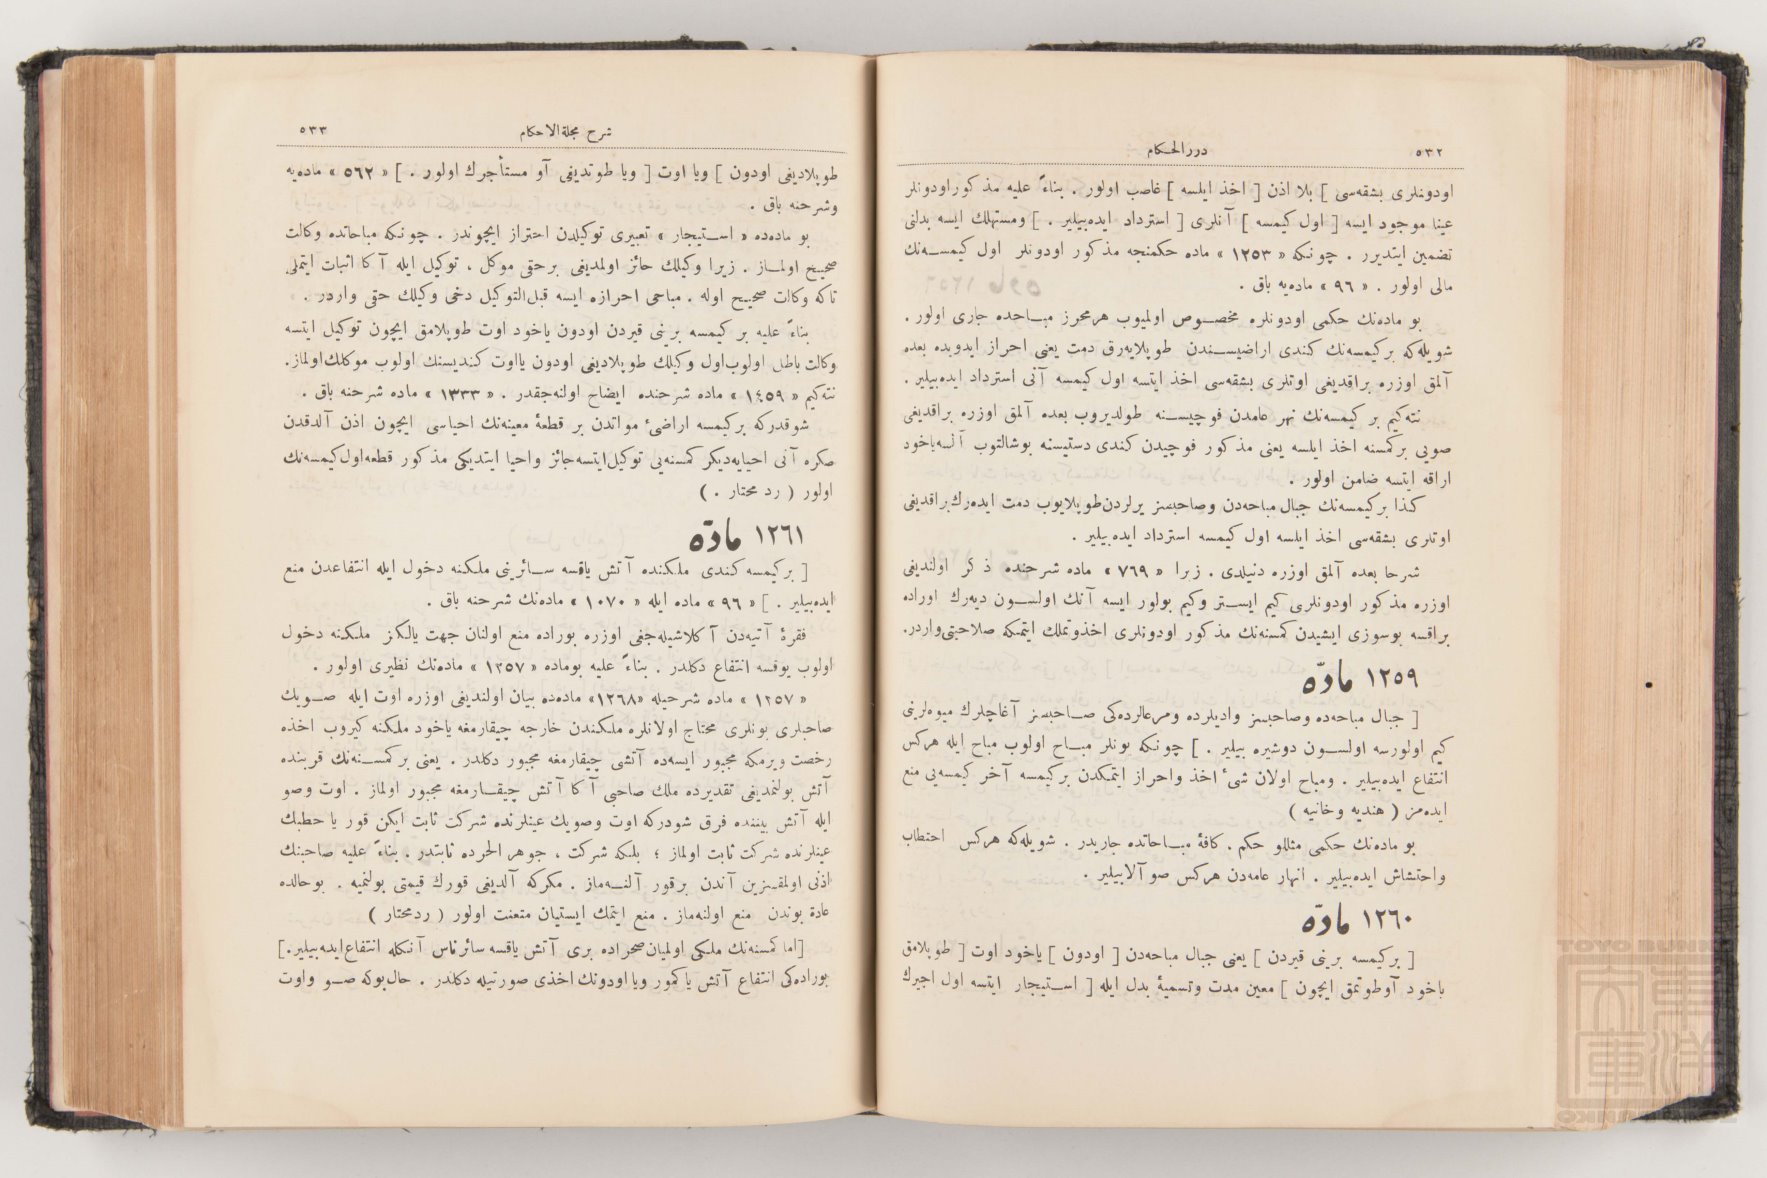 ٥٣٢
دررالحكام
اودونلرى بشقه‌سى ] بلا اذن [ اخذ ايلسه ] غاصب اولور . بناءً عليه مذكور اودونلر
عينا موجود ايسه [ اول كيمسه ] آنلرى [ استرداد ايده‌بيلير . ] ومستهلك ايسه بدلنى
تضمين ايتديرر . چونكه « ١٢٥٣ » ماده حكمنجه مذكور اودونلر اول كيمسه‌نك
مالى اولور . « ٩٦ » ماده‌يه باق .
بو ماده‌نك حكمى اودونلره مخصوص اولميوب هرمحرز مباحده جارى اولور .
شويله‌كه بركيمسه‌نك كندى اراضيسندن طوپلايه‌رق دمت يعنى احراز ايدوبده بعده
آلمق اوزره براقديغى اوتلرى بشقه‌سى اخذ ايتسه اول كيمسه آنى استرداد ايده‌بيلير .
نته‌كيم بر كيمسه‌نك نهر عامدن فوچيسنه طولديروب بعده آلمق اوزره براقديغى
صويى بركمسنه اخذ ايلسه يعنى مذكور فوچيدن كندى دستيسنه بوشالتوب آلسه ياخود
اراقه ايتسه ضامن اولور .
كذا بركيمسه‌نك جبال مباحه‌دن وصاحبسز يرلردن طوپلايوب دمت ايده‌رك براقديغى
اوتلرى بشقه‌سى اخذ ايلسه اول كيمسه استرداد ايده‌بيلير .
شرحا بعده آلمق اوزره دنيلدى . زيرا « ٧٦٩ » ماده شرحنده ذكر اولنديغى
اوزره مذكور اودونلرى كيم ايستر وكيم بولور ايسه آنك اولسون ديه‌رك اوراده
براقسه بوسوزى ايشيدن كمسنه‌نك مذكور اودونلرى اخذوتملك ايتمكه صلاحيتى واردر.
١٢٥٩ مادّه
[ جبال مباحه‌ده وصاحبسز واديلرده ومرعالرده‌كى صاحبسز آغاچلرك ميوه‌لرينى
كيم اولورسه اولسون دوشيره بيلير . ] چونكه بونلر مباح اولوب مباح ايله هركس
انتفاع ايده‌بيلير . ومباح اولان شىٔ اخذ واحراز ايتمكدن بركيمسه آخر كيمسه‌يى منع
ايده‌مز ( هنديه وخانيه )
بو ماده‌نك حكمى مثللو حكم . كافهٔ مباحاتده جاريدر . شويله‌كه هركس احتطاب
واحتشاش ايده‌بيلير . انهار عامه‌دن هركس صو آلابيلير .
١٢٦٠ مادّه
[ بركيمسه برينى قيردن ] يعنى جبال مباحه‌دن [ اودون ] ياخود اوت [ طوپلامق
ياخود آوطوتمق ايچون ] معين مدت وتسميهٔ بدل ايله [ استيجار ايتسه اول اجيرك
شرح مجلةالاحكام
٥٣٣
طوپلاديغى اودون ] ويا اوت [ ويا طوتديغى آو مستأجرك اولور . ] « ٥٦٢ » ماده‌يه
وشرحنه باق .
بو ماده‌ده « استيجار » تعبيرى توكيلدن احتراز ايچوندر . چونكه مباحاتده وكالت
صحيح اولماز . زيرا وكيلك حائز اولمديغى برحقى موكل ، توكيل ايله آكا اثبات ايتملى
تاكه وكالت صحيح اوله . مباحى احرازه ايسه قبل‌التوكيل دخى وكيلك حقى واردر .
بناءً عليه بر كيمسه برينى قيردن اودون ياخود اوت طوپلامق ايچون توكيل ايتسه
وكالت باطل اولوب اول وكيلك طوپلاديغى اودون يااوت كنديسنك اولوب موكلك‌اولماز.
نته‌كيم « ١٤٥٩ » ماده شرحنده ايضاح اولنه‌جقدر . « ١٣٣٣ » ماده شرحنه باق .
شوقدركه بركيمسه اراضىٔ مواتدن بر قطعهٔ معينه‌نك احياسى ايچون اذن آلدقدن
صكره آنى احيايه‌ديكر كمسنه‌يى توكيل‌ايتسه‌جائز واحيا ايتديكى مذكور قطعه‌اول‌كيمسه‌نك
اولور ( رد محتار . )
١٢٦١ مادّه
[ بركيمسه كندى ملكنده آتش ياقسه سائرينى ملكنه دخول ايله انتفاعدن منع
ايده‌بيلير . ] « ٩٦ » ماده ايله « ١٠٧٠ » ماده‌نك شرحنه باق .
فقرهٔ آتيه‌دن آكلاشيله‌جغى اوزره بوراده منع اولنان جهت يالكز ملكنه دخول
اولوب يوقسه انتفاع دكلدر . بناءً عليه بوماده « ١٢٥٧ » ماده‌نك نظيرى اولور .
« ١٢٥٧ » ماده شرحيله «١٢٦٨» ماده‌ده بيان اولنديغى اوزره اوت ايله صويك
صاحبلرى بونلرى محتاج اولانلره ملكندن خارجه چيقارمغه ياخود ملكنه كيروب اخذه
رخصت ويرمكه مجبور ايسه‌ده آتشى چيقارمغه مجبور دكلدر . يعنى بركمسنه‌نك قربنده
آتش بولنمديغى تقديرده ملك صاحبى آكا آتش چيقارمغه مجبور اولماز . اوت وصو
ايله آتش بيننده فرق شودركه اوت وصويك عينلرنده شركت ثابت ايكن قور يا حطبك
عينلرنده شركت ثابت اولماز ؛ بلكه شركت ، جوهر الحرده ثابتدر . بناءً عليه صاحبنك
اذنى اولمقسزين آندن برقور آلنه‌ماز . مكركه آلديغى قورك قيمتى بولنميه . بوحالده
عادة بوندن منع اولنه‌ماز . منع ايتمك ايستيان متعنت اولور ( ردمحتار )
[اما كمسنه‌نك ملكى اولميان صحراده برى آتش ياقسه سائرناس آنكله انتفاع‌ايده‌بيلير.]
بوراده‌كى انتفاع آتش يا كمور ويا اودونك اخذى صورتيله دكلدر . حال‌بوكه صو واوت